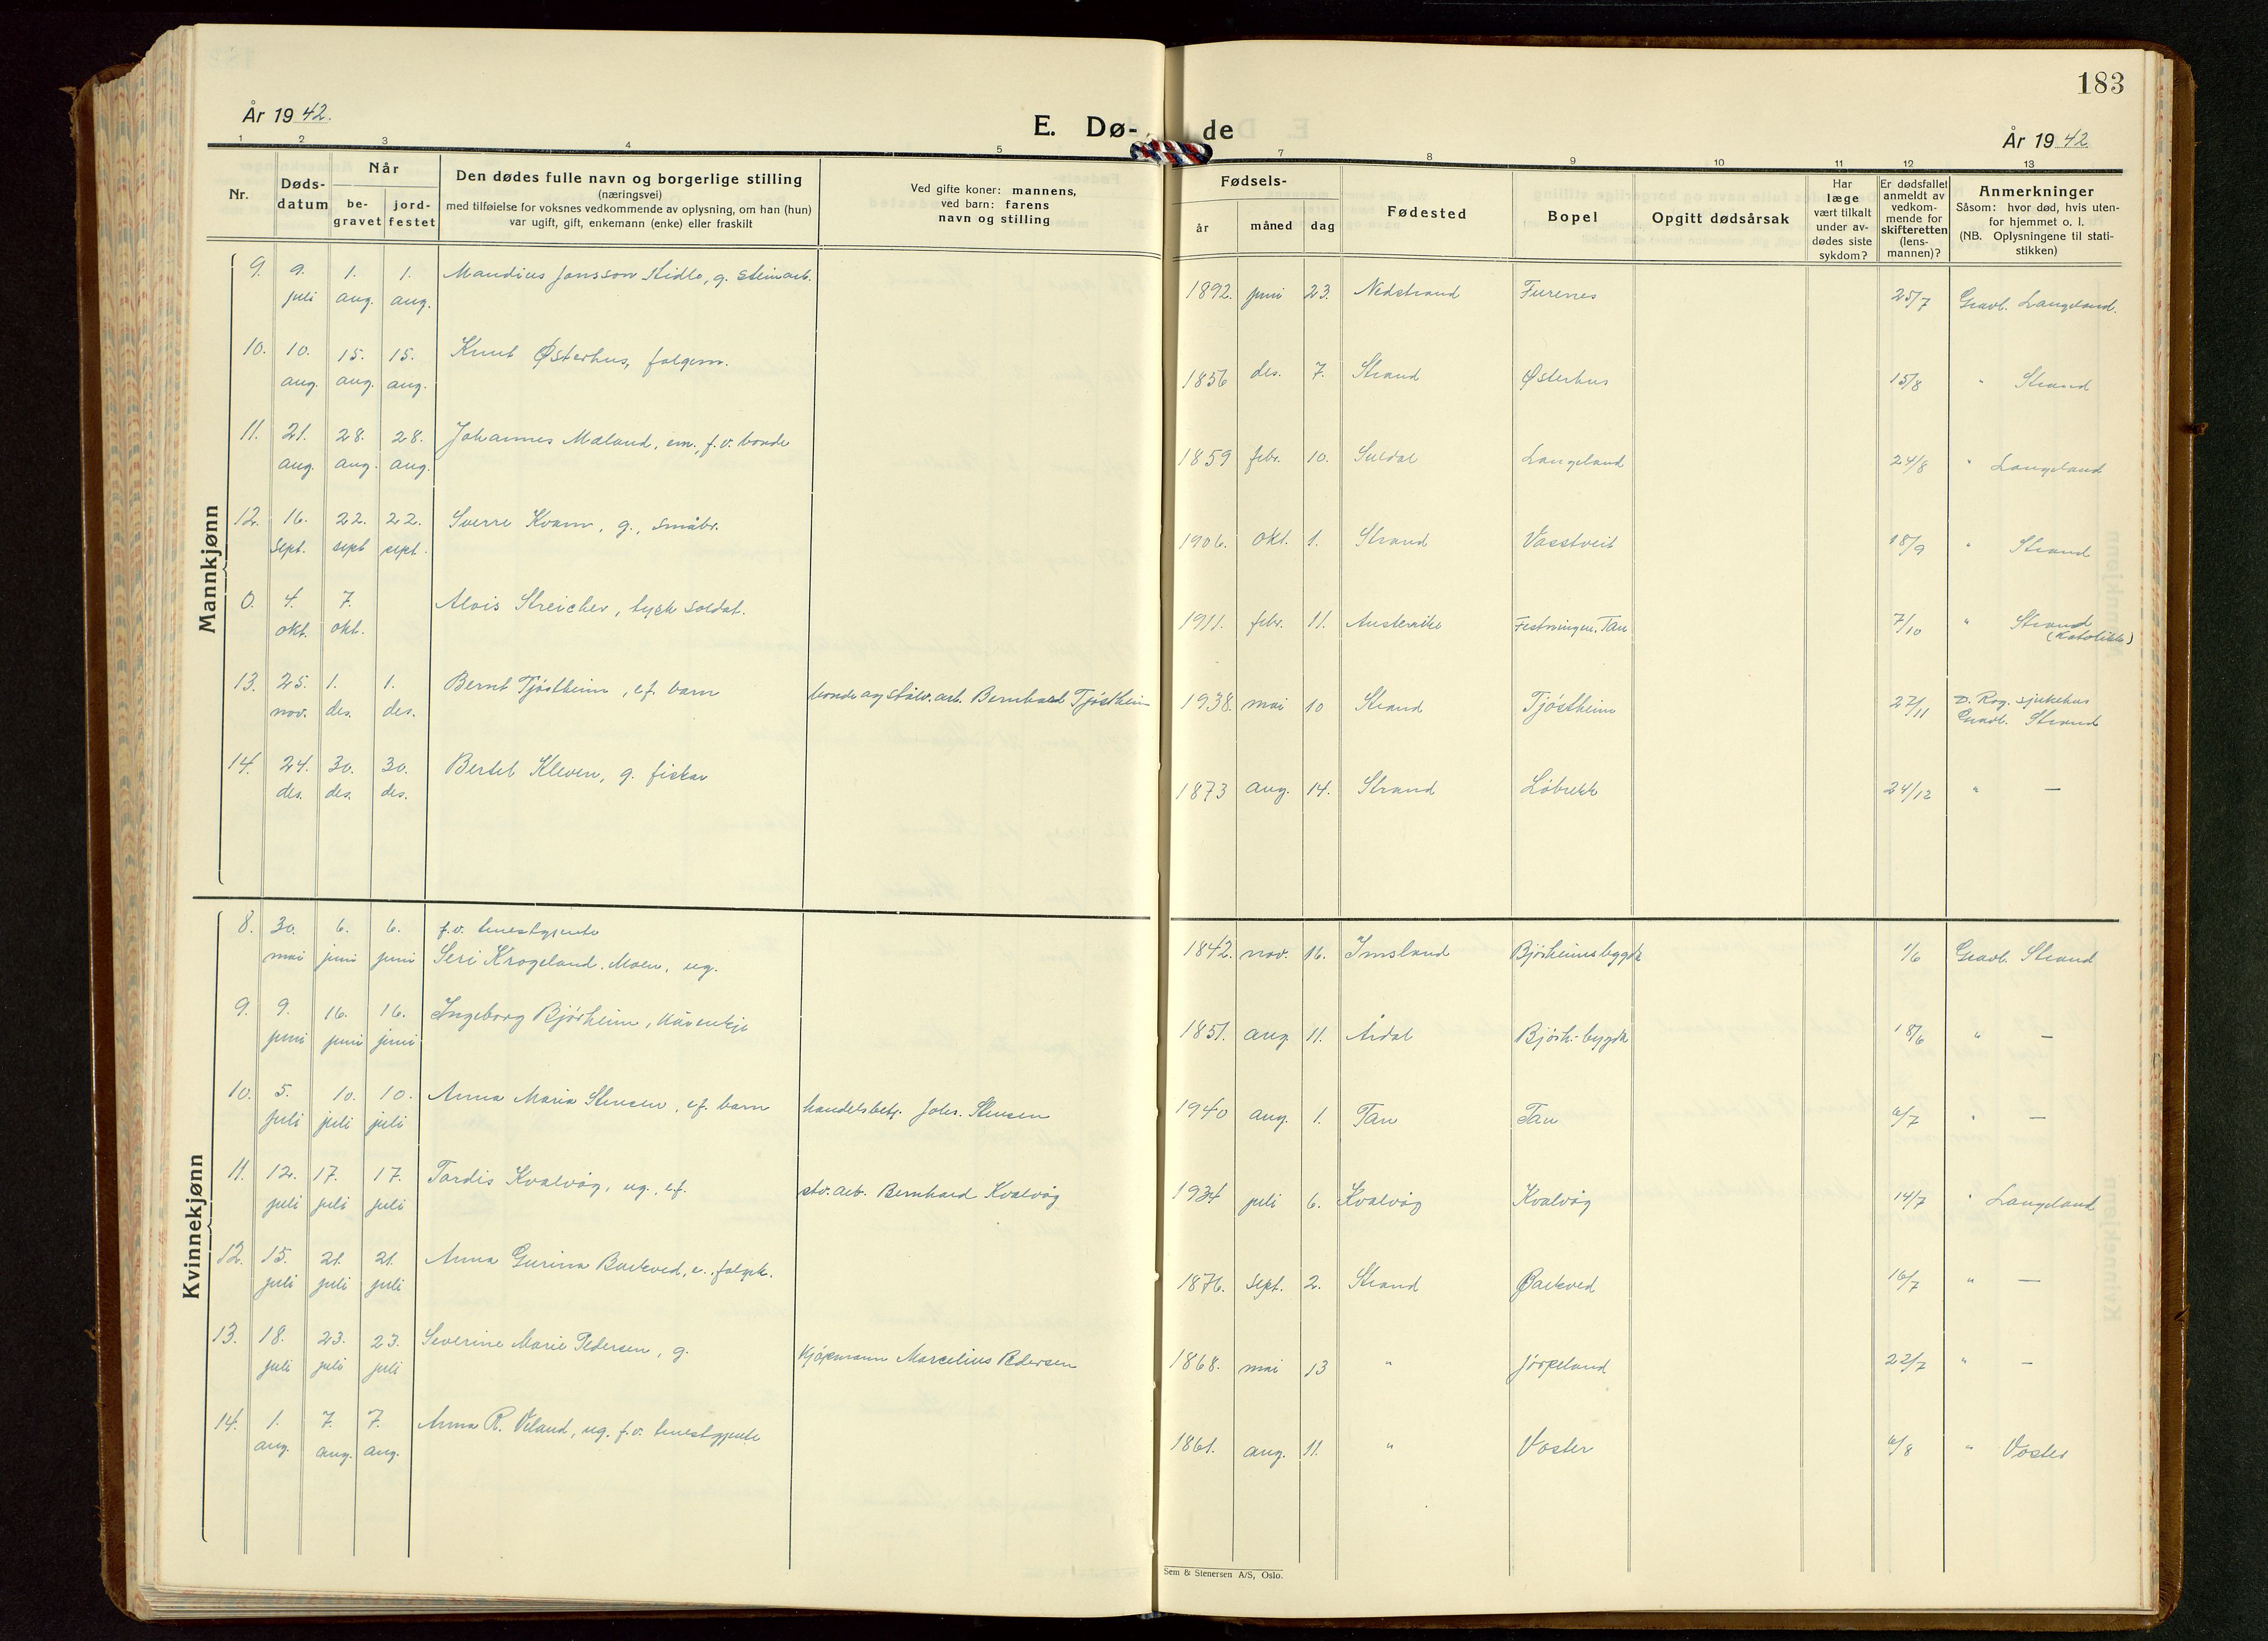 183
År 1942.
E. Dø-
de
År 1942
1 2 3 4 5 7 8 9 10 11 12 13
Nr.
Døds-
datum
Når
be-
gravet
jord-
festet
Den dødes fulle navn og borgerlige stilling
(næringsvei)
med tilføielse for voksnes vedkommende av oplysning, om han (hun)
var ugift, gift, enkemann (enke) eller fraskilt
Ved gifte koner: mannens,
ved barn: farens
navn og stilling
Fødsels-
år
måned
dag
Fødested
Bopel
Opgitt dødsårsak
Har
læge
vært tilkalt
under av-
dødes siste
sykdom?
Er dødsfallet
anmeldt av
vedkom-
mende for
skifteretten
(lens-
mannen)?
Anmerkninger
Såsom: hvor død, hvis uten-
for hjemmet o. l.
(NB. Oplysningene til stati-
stikken)
Mannkjønn
9. 9. juli 1. aug. 1. aug. Mandius Jonsson Kidle, g. steinarb. 1892. juni 23. Nedstrand Furenes 25/7 Gravl. Langeland.
10. 10. aug. 15. aug. 15. aug. Knut Østerhus, folgem. 1856 des. 7. Strand Østerhus 15/8 " Strand
11. 21. aug. 28. aug. 28. aug. Johannes Maland, em., f.v. bonde 1859 febr. 10. Suldal Langeland 24/8 " Langeland
12. 16. sept. 22. sept 22. sept. Sverre Kvam, g., småbr. 1906. okt. 1. Strand Vastveit 18/9 " Strand
0. 4. okt. 7. okt. Alois Streicher, tysk soldat. 1911. febr. 11. Austerrike Festningen, Tau 7/10 " Strand (Katolikk)
13. 25. nov. 1. des. 1. des. Bernt Tjøstheim, ef. barn bonde og stålv. arb. Bernhard Tjøstheim 1938. mai 10 Strand Tjøstheim 27/11 D. Rog. sjukehus Gravl. Strand
14. 24. des. 30. des. 30. des. Bertel Kleven, g. fiskar 1873 aug. 14. Strand Løbrekk 24/12 " —
Kvinnekjønn
8. 30. mai 6. juni 6. juni f.v. tenestgjente Seri Krogeland, Moen, ug. 1842. nov. 16. Imsland Bjørheimsbygda 1/6 Gravl. Strand
9. 9. juni 16. juni 16. juni Ingeborg Bjørheim, 1851. aug. 11. Årdal Bjørh.-bygda 18/6 " —
10. 5. juli 10. juli 10. juli Anna Maria Stensen, ef. barn handelsbetj. Johs. Stensen 1940 aug. 1. Tau Tau 6/7 " —
11. 12. juli 17. juli 17. juli Tordis Kvalvåg, ug., ef. stv. arb. Bernhard Kvalvåg 1934 juli 6. Kvalvåg Kvalvåg 14/7 " Langeland
12. 15. juli 21. juli 21. juli Anna Gurina Barkved, e., folgek. 1876. sept. 2. Strand Barkved 16/7 " —
13. 18. juli 23. juli 23. juli Severine Marie Pedersen, g. kjøpmann Marcelius Pedersen 1868. mai 13 " Jørpeland 22/7 " —
14. 1. aug. 7. aug. 7. aug. Anna R. Veland, ug. f.v. tenestgjente 1861. aug. 11. " Voster 6/8 " Voster
Sem & Stenersen A/S, Oslo.